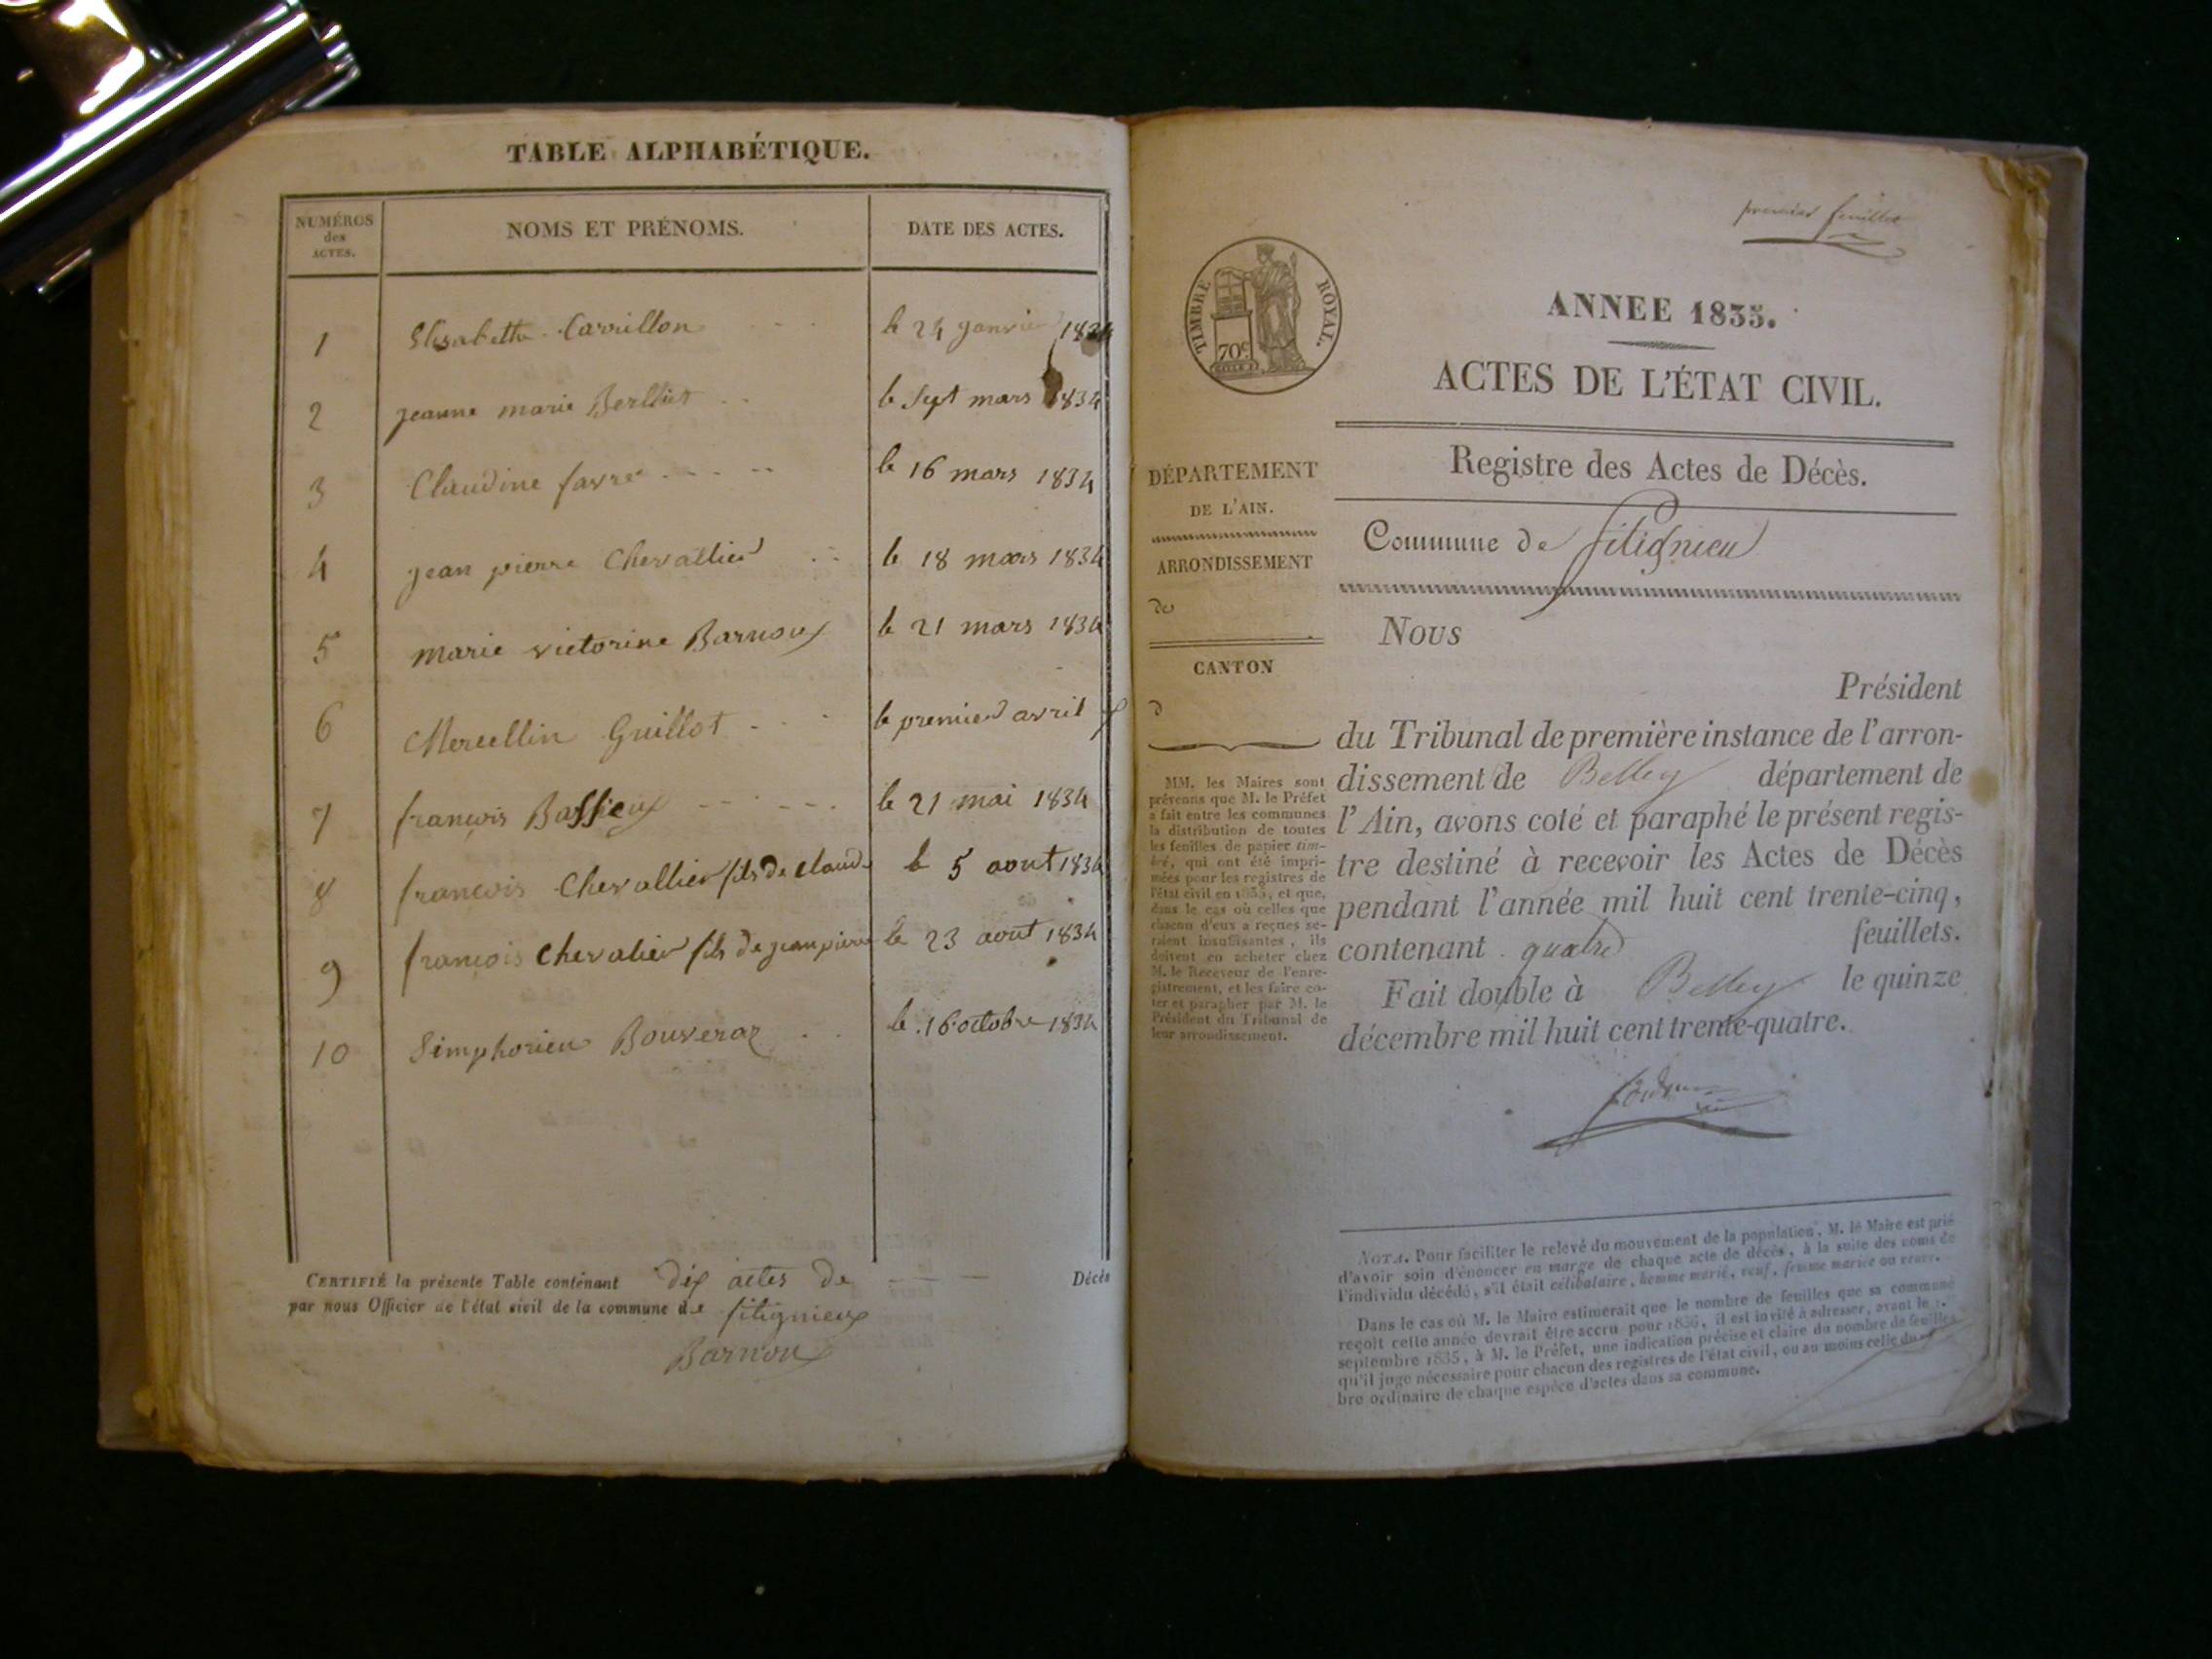 TABLE ALPHABÉTIQUE.
NUMÉROS des ACTES.
NOMS ET PRÉNOMS.
DATE DES ACTES.
1 Elisabeth Carrillon le 24 janvier 1834
2 jeanne marie Berlhet le sept mars 1834
3 Claudine favre le 16 mars 1834
4 jean pierre Chevallier le 18 mars 1834
5 marie victorine Barnoux le 21 mars 1834
6 Mercellin Guillot le premier avril
7 françois Bassieux le 21 mai 1834
8 françois Chevallier fils de claude le 5 aout 1834
9 françois Chevalier fils de jean pierre le 23 aout 1834
10 Simphorien Bouveraz le 16 octobre 1834
CERTIFIÉ la présente Table contenant dix actes de Décès
par nous Officier de l'état civil de la commune de fitignieux
Barnoux
premier feuillet
TIMBRE ROYAL.
70c
ANNEE 1835.
ACTES DE L'ÉTAT CIVIL.
Registre des Actes de Décès.
Commune de fitignieu
DÉPARTEMENT
DE L'AIN.
ARRONDISSEMENT
de
CANTON
d
MM. les Maires sont
prévenus que M. le Préfet
a fait entre les communes
la distribution de toutes
les feuilles de papier tim-
bré, qui ont été impri-
mées pour les registres de
l'état civil en 1835, et que,
dans le cas où celles que
chacun d'eux a reçues se-
raient insuffisantes, ils
doivent en acheter chez
M. le Receveur de l'enre-
gistrement, et les faire co-
ter et parapher par M. le
Président du Tribunal de
leur arrondissement.
Nous
Président
du Tribunal de première instance de l'arron-
dissement de Belley département de
l'Ain, avons coté et paraphé le présent regis-
tre destiné à recevoir les Actes de Décès
pendant l'année mil huit cent trente-cinq,
contenant quatre feuillets.
Fait double à Belley le quinze
décembre mil huit cent trente-quatre.
NOTA. Pour faciliter le relevé du mouvement de la population, M. le Maire est prié
d'avoir soin d'énoncer en marge de chaque acte de décès, à la suite des noms de
l'individu décédé, s'il était célibataire, homme marié, veuf, femme mariée ou veuve.
Dans le cas où M. le Maire estimerait que le nombre de feuilles que sa commune
reçoit cette année devrait être accru pour 1836, il est invité à adresser, avant le 1.er
septembre 1835, à M. le Préfet, une indication précise et claire du nombre de feuilles
qu'il juge nécessaire pour chacun des registres de l'état civil, ou au moins celle du
bre ordinaire de chaque espèce d'actes dans sa commune.